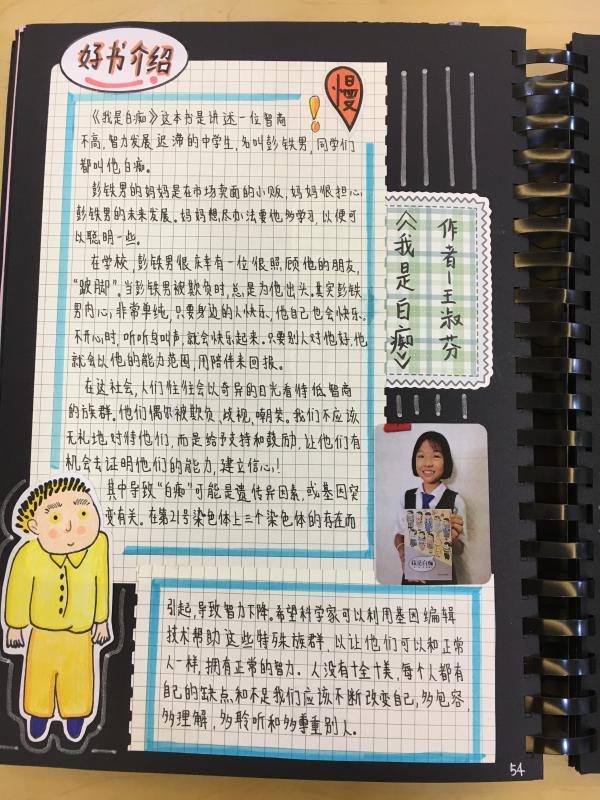 好书介绍
慢
《我是白痴》这本书是讲述一位智商
不高,智力发展迟滞的中学生,名叫彭铁男,同学们
都叫他白痴。
彭铁男的妈妈是在市场卖面的小贩,妈妈很担心
彭铁男的未来发展。妈妈想尽办法要他多学习,以便可
以聪明一些。
在学校,彭铁男很庆幸有一位很照顾他的朋友,
“跛脚”。当彭铁男被欺负时,总是为他出头。其实彭铁
男内心非常单纯,只要身边的人快乐,他自己也会快乐。
不开心时,听听鸟叫声,就会快乐起来。只要别人对他好,他
就会以他的能力范围,用陪伴来回报。
在这社会,人们往往会以奇异的目光看待低智商
的族群。他们偶尔被欺负、歧视,嘲笑。我们不应该
无礼地对待他们,而是给予支持和鼓励,让他们有
机会去证明他们的能力,建立信心!
其中导致“白痴”可能是遗传异因素,或基因突
变有关。在第21号染色体上三个染色体的存在而
引起,导致智力下降。希望科学家可以利用基因编辑
技术帮助这些特殊族群,以让他们可以和正常
人一样,拥有正常的智力。人没有十全十美,每个人都有
自己的缺点和不足我们应该不断改变自己,多包容,
多理解,多聆听和多尊重别人。
作者-王淑芬
《我是白痴》
我是白痴
54